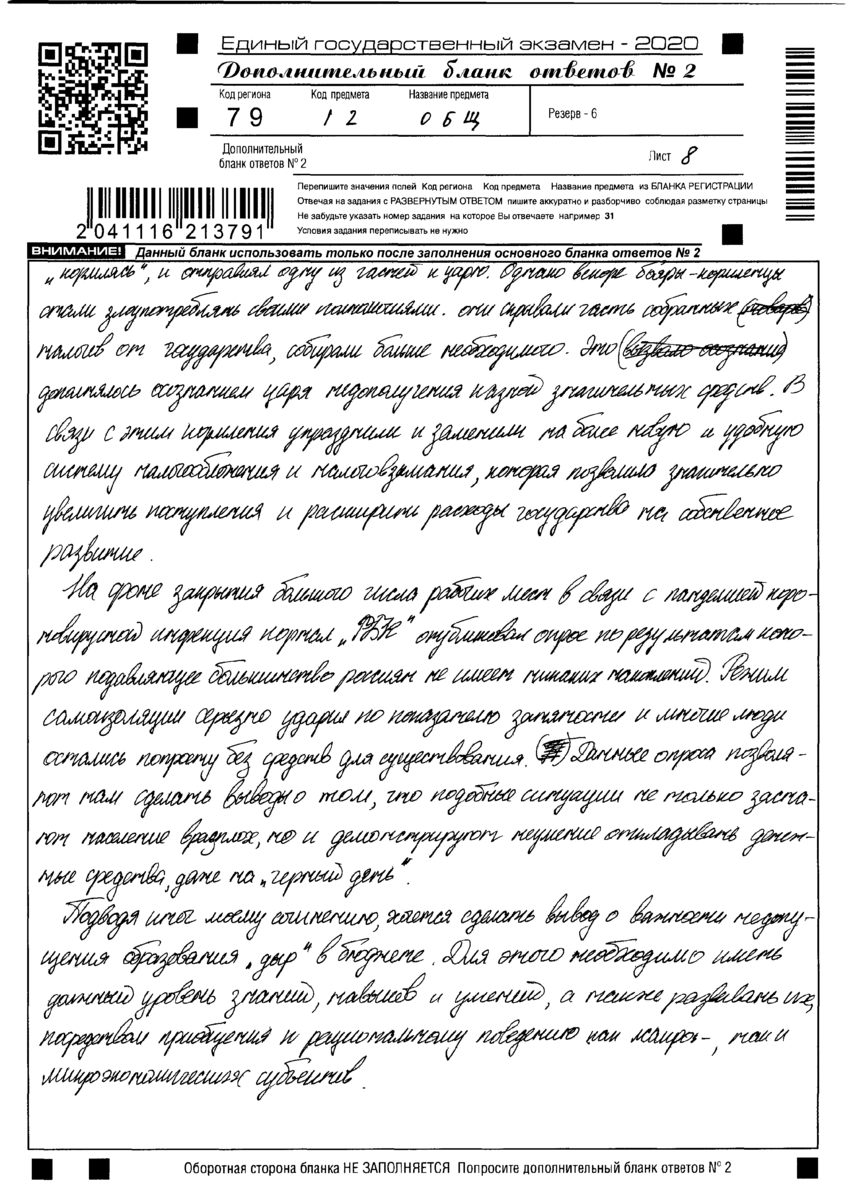 Единый государственный экзамен - 2020
Дополнительный бланк ответов № 2
Код региона Код предмета Название предмета
79 12 ОБЩ Резерв - 6
Дополнительный
бланк ответов № 2
Лист 8
Перепишите значения полей Код региона Код предмета Название предмета из БЛАНКА РЕГИСТРАЦИИ
Отвечая на задания с РАЗВЕРНУТЫМ ОТВЕТОМ пишите аккуратно и разборчиво соблюдая разметку страницы
Не забудьте указать номер задания на которое Вы отвечаете например 31
Условия задания переписывать не нужно
2 041116 213791
ВНИМАНИЕ! Данный бланк использовать только после заполнения основного бланка ответов № 2
„кормилясь", и отправлял одну из частей к царю. Однако вскоре бояры-кормленцы
стали злоупотреблять своими полномочиями. они скрывали часть собранных
налогов от государства, собирали больше необходимого. Это
дополнялось осознанием царя недополучения казной значительных средств. В
связи с этим кормления упразднили и заменили на более новую и удобную
систему налогообложения и налоговзымания, которая позволила значительно
увеличить поступления и расширить расходы государства на собственное
развитие.
На фоне закрытия большого числа рабочих мест в связи с пандемией коро-
новирусной инфекция портал „РБК" опубликовал опрос по результатам кото-
рого подавляющее большинство россиян не имеет никаких накоплений. Режим
самоизоляции серьезно ударил по показателю занятости и многие люди
остались попросту без средств для существования. Данные опроса позволя-
ют нам сделать выводы о том, что подобные ситуации не только заста-
ют население врасплох, но и демонстрируют неумение откладывать денеж-
ные средства, даже на „черный день".
Подводя итог моему сочинению, хочется сделать вывод о важности недопу-
щения образования „дыр" в бюджете. Для этого необходимо иметь
должный уровень знаний, навыков и умений, а также развивать их,
посредством приобщения к рациональному поведению как макро-, так и
микроэкономических субъектов.
Оборотная сторона бланка НЕ ЗАПОЛНЯЕТСЯ Попросите дополнительный бланк ответов № 2